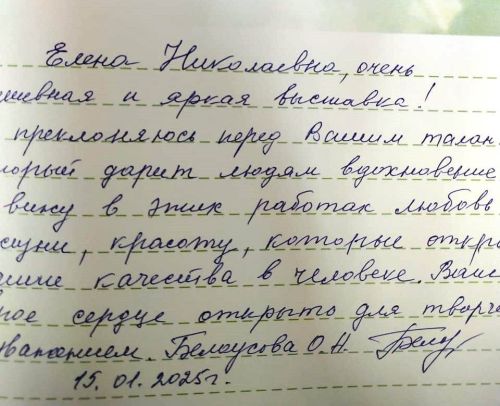 Елена Николаевна, очень
шевная и яркая выставка!
преклоняюсь перед Вашим талан
торый дарит людям вдохновение
вижу в этих работах любовь
изни, красоту, которые откры
чшие качества в человеке. Ваше
ное сердце открыто для творче
уважением. Белоусова О.Н.
15.01.2025г.